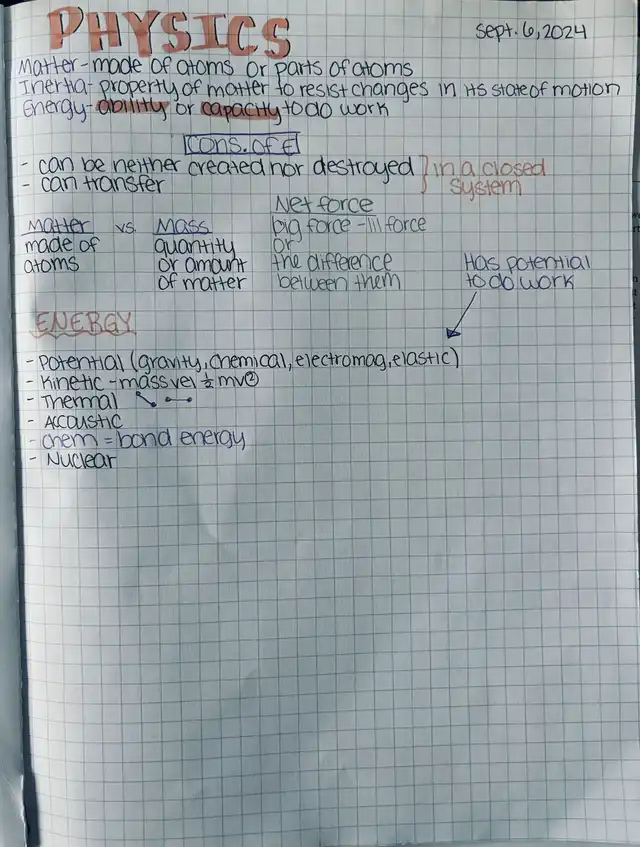 PHYSICS
Sept. 6, 2024
Matter - made of atoms or parts of atoms
Inertia - property of matter to resist changes in its state of motion
Energy - ability or capacity to do work
Cons. of E
- can be neither created nor destroyed } in a closed
- can transfer
system
Net force
Matter vs. Mass
big force - lil force
made of
quantity
or
atoms
or amount
the difference
of matter
between them
Has potential
to do work
ENERGY
- Potential (gravity, chemical, electromag, elastic)
- Kinetic - mass vel ½ mv②
- Thermal
- Accoustic
- chem = bond energy
- Nuclear